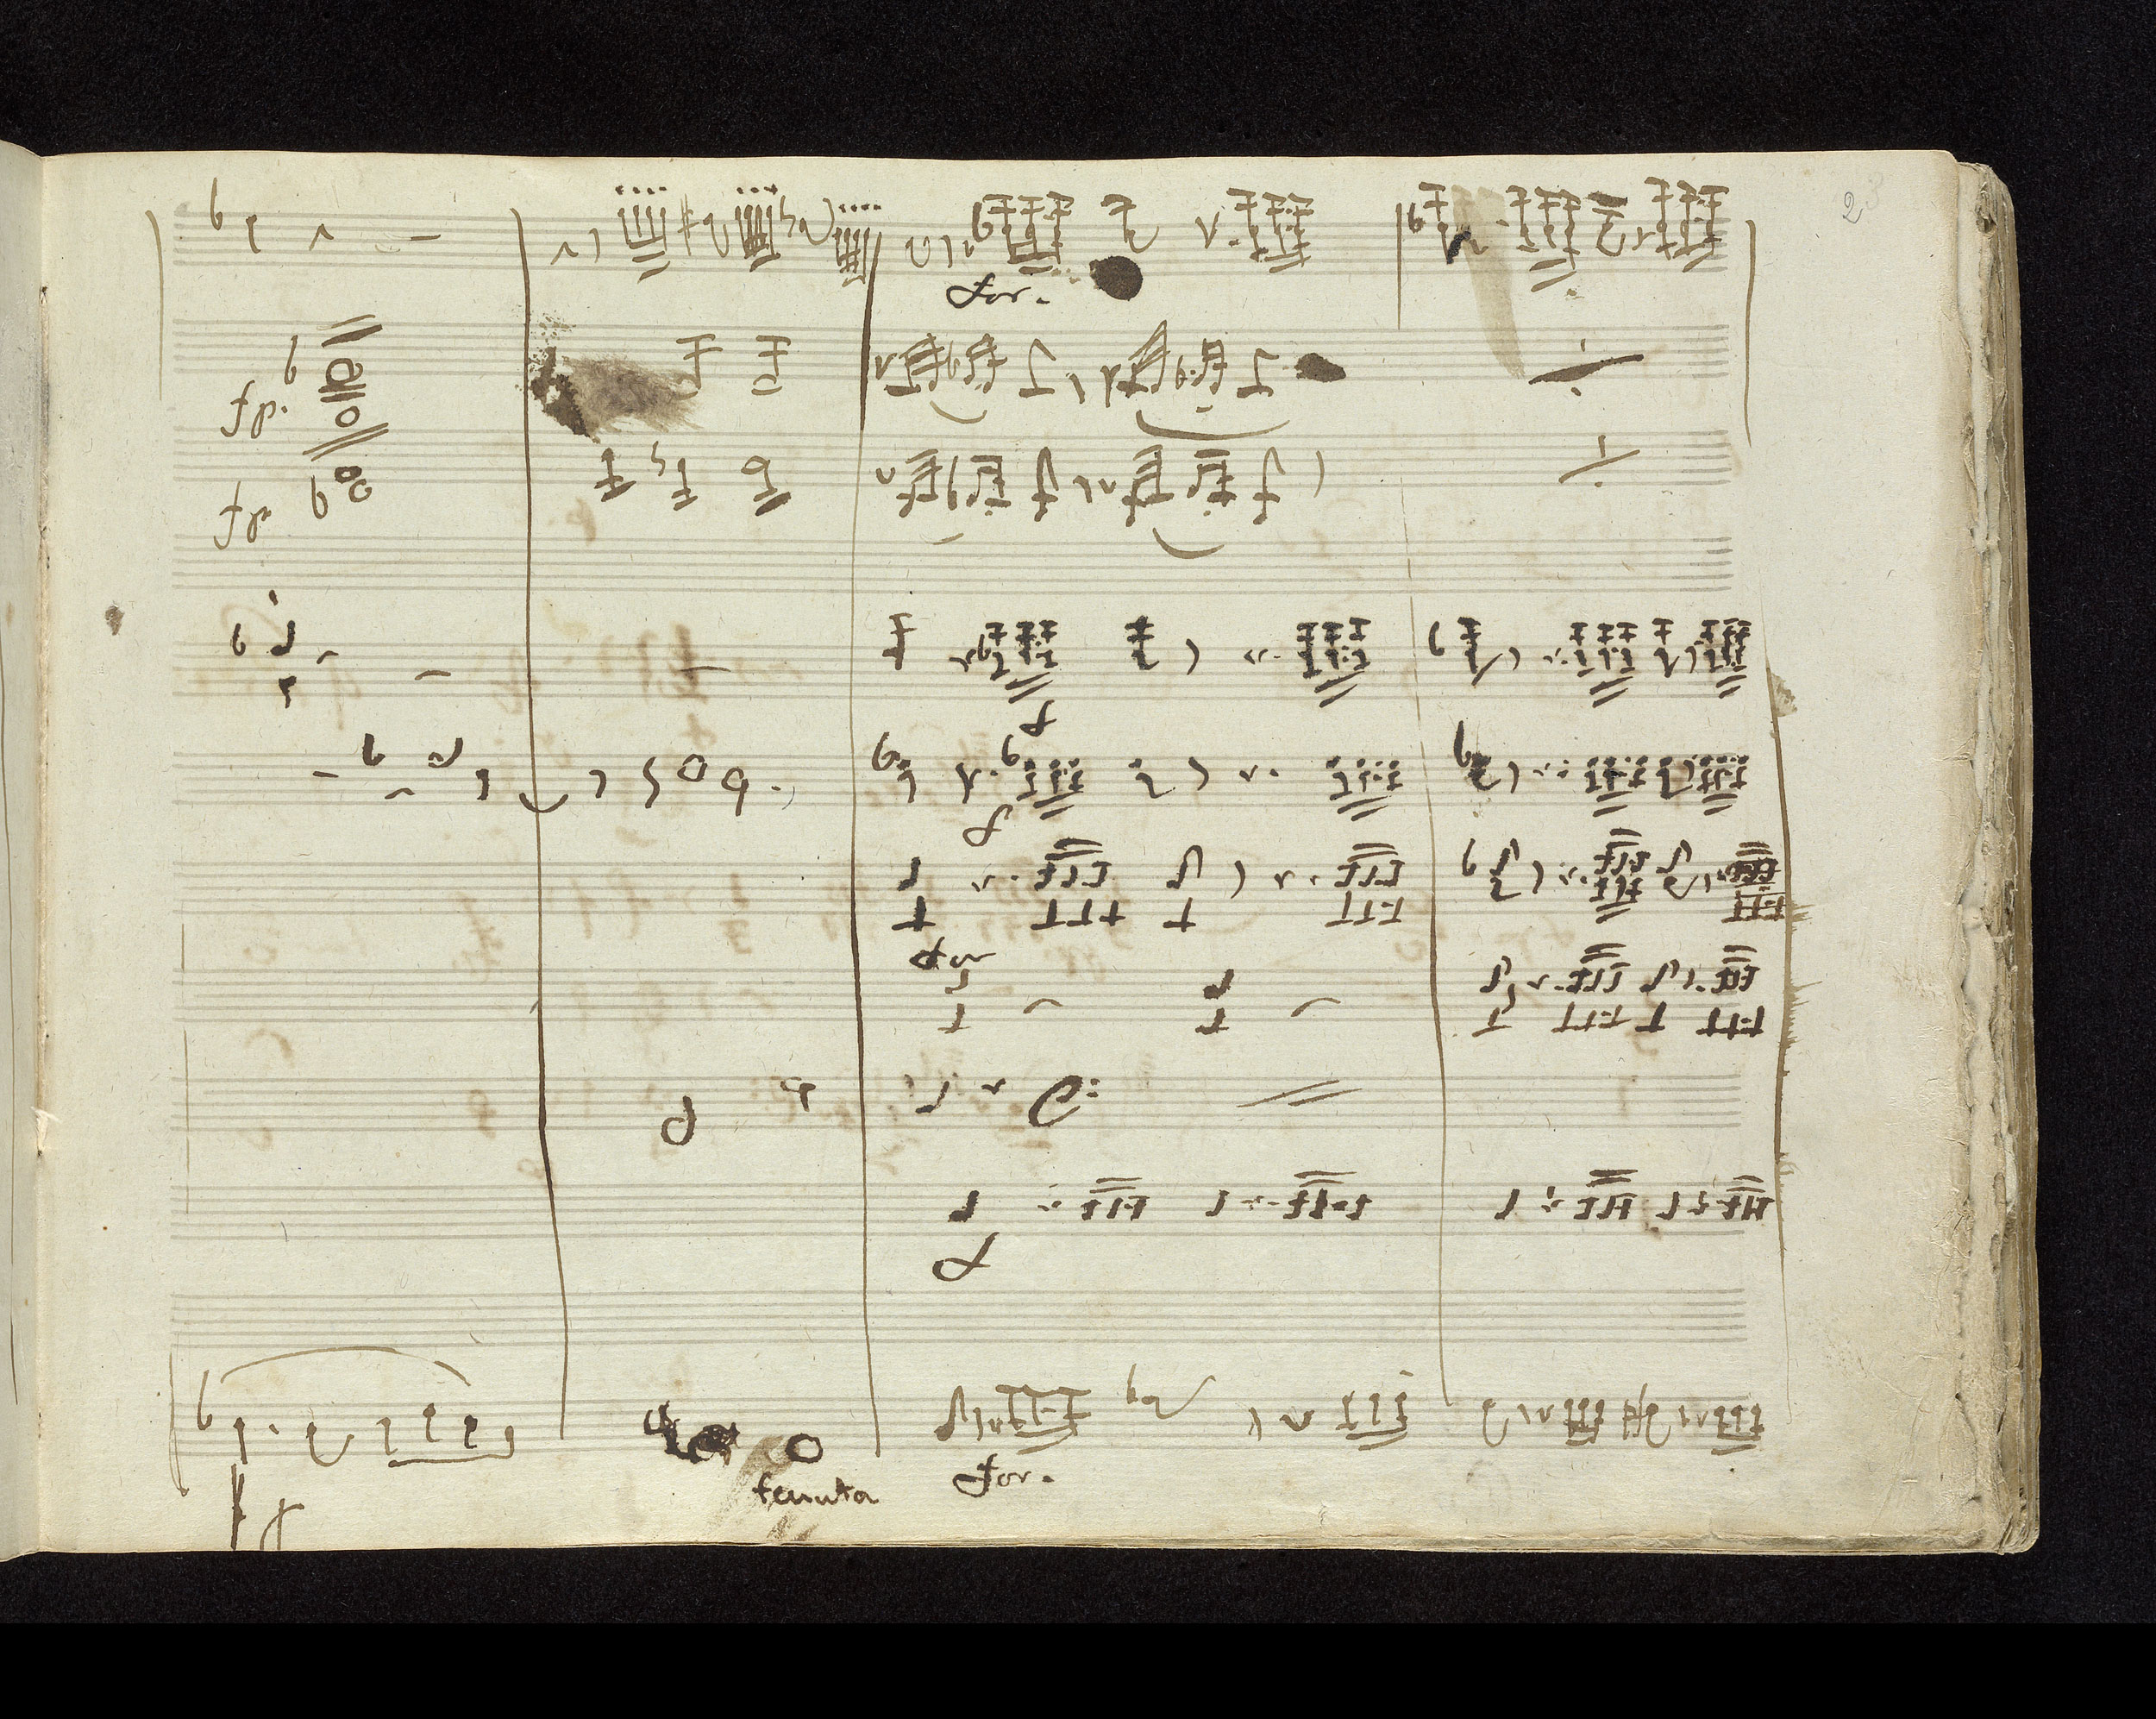 23
for.
fp.
fp.
f
f
for
f
for.
tenuta